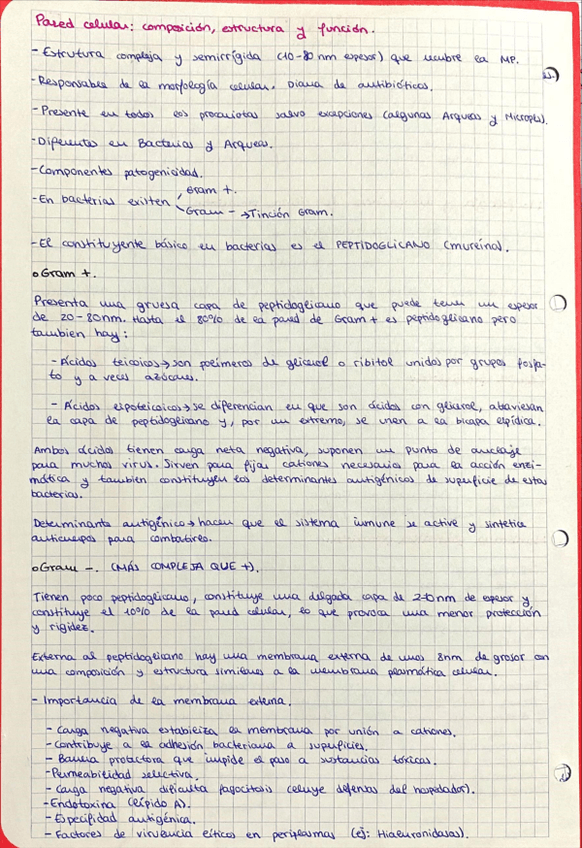 Pared celular: composición, estructura y función.
- Estrutura compleja y semirrígida (10-80 nm espesor) que recubre la MP.
- Responsable de la morfología celular. Diana de antibióticos.
- Presente en todos los procariotas salvo excepciones (algunas Arqueas y Micropls).
- Diferentes en Bacterias y Arqueas.
- Componentes patogenicidad.
- En bacterias existen Gram +.
Gram - → Tinción Gram.
- El constituyente básico en bacterias es el PEPTIDOGLICANO (mureína).
o Gram +.
Presenta una gruesa capa de peptidoglicano que puede tener un espesor
de 20-80nm. Hasta el 80% de la pared de Gram + es peptidoglicano pero
tambien hay:
- Ácidos teicoicos → son polímeros de glicerol o ribitol unidos por grupos fosfa-
to y a veces azúcares.
- Ácidos lipoteicoicos → se diferencian en que son ácidos con glicerol, atraviesan
la capa de peptidoglicano y, por un extremo, se unen a la bicapa lipídica.
Ambos ácidos tienen carga neta negativa, suponen un punto de anclaje
para muchos virus. Sirven para fijar cationes necesarios para la acción enzi-
mática y tambien constituyen los determinantes antigénicos de superficie de estas
bacterias.
Determinante antigénico → hacen que el sistema inmune se active y sintetice
anticuerpos para combatirlo.
o Gram -. (MÁS COMPLEJA QUE +).
Tienen poco peptidoglicano, constituye una delgada capa de nm de espesor y
constituye el 10% de la pared celular, lo que provoca una menor protección
y rigidez.
Externa al peptidoglicano hay una membrana externa de unos 8nm de grosor con
una composición y estructura similares a la membrana plasmática celular.
- Importancia de la membrana externa.
- Carga negativa estabiliza la membrana por unión a cationes.
- Contribuye a la adhesión bacteriana a superficies.
- Barrera protectora que impide el paso a sustancias tóxicas.
- Permeabilidad selectiva.
- Carga negativa dificulta fagocitosis (eluye defensas del hospedador).
- Endotoxina (lípido A).
- Especifidad antigénica.
- Factores de virulencia líticos en periplasmas (ej: Hialuronidasas).